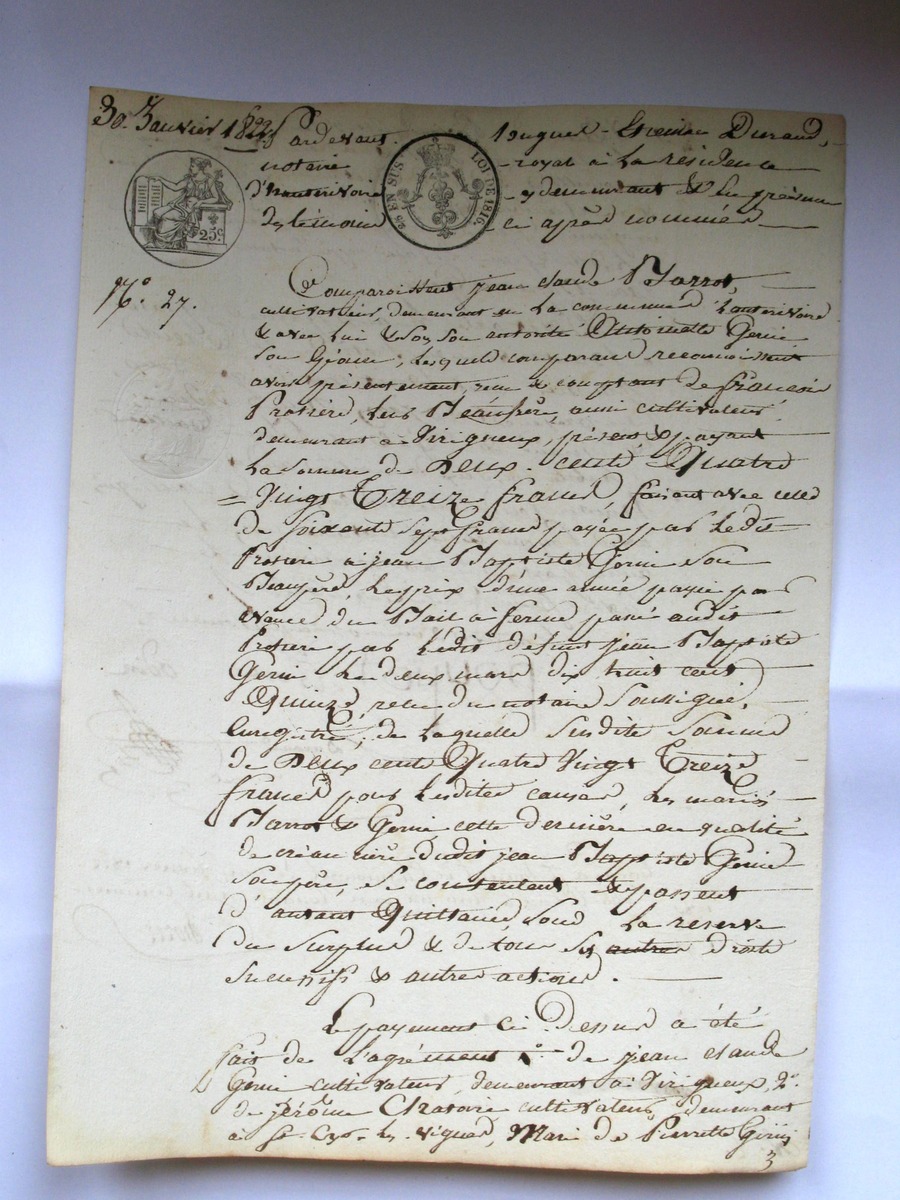 30. Janvier 1822
Pardevant Jouquet - Etienne Durand,
notaire royal à la résidence
d'hauterivoire y demeurant & en présence
des témoins ci après nommés
25 EN SUS LOI DE 1816.
25c
N.° 27.
Comparoissent jean claude Barrot,
cultivateur, demeurant en la commune d'hauterivoire
& avec lui & de son autorité Antoinette Gerin
son Épouse, lesquels comparans reconnoissent
avoir présentement, reçu & comptant de francois
Protière, leur Beaufrère, aussi cultivateur
demeurant à Virigneux, présent & payant
la somme de Deux-cents Quatre
= Vingt Treize francs, faisant avec celle
de soixante sept francs payée par ledit
Protière à jean Baptiste Gerin son
Beaupère, le prix d'une année payée par
avance du Bail à ferme passé audit
Protière par ledit défunt jean Baptiste
Gerin le deux mars dix huit cent
Quinze, reçu du notaire soussigné,
Enregistré, de laquelle susdite somme
de Deux cents Quatre Vingt Treize
francs pour lesdites causes, les mariés
Barrot & Gerin cette dernière en qualité
de créancière dudit jean Baptiste Gerin
son père, se contentent & passent
d'autant Quittance, sous la reserve
du surplus & de tous ses autres droits
successifs & autres actions.
Le payement ci Dessus a été
fait de l'agrément 1.° de jean claude
Gerin cultivateur, demeurant à Virigneux, 2.°
de jérôme Chatoire cultivateur demeurant
à St. Cyr-les-vignes, Mari de Pierrette Gerin
3